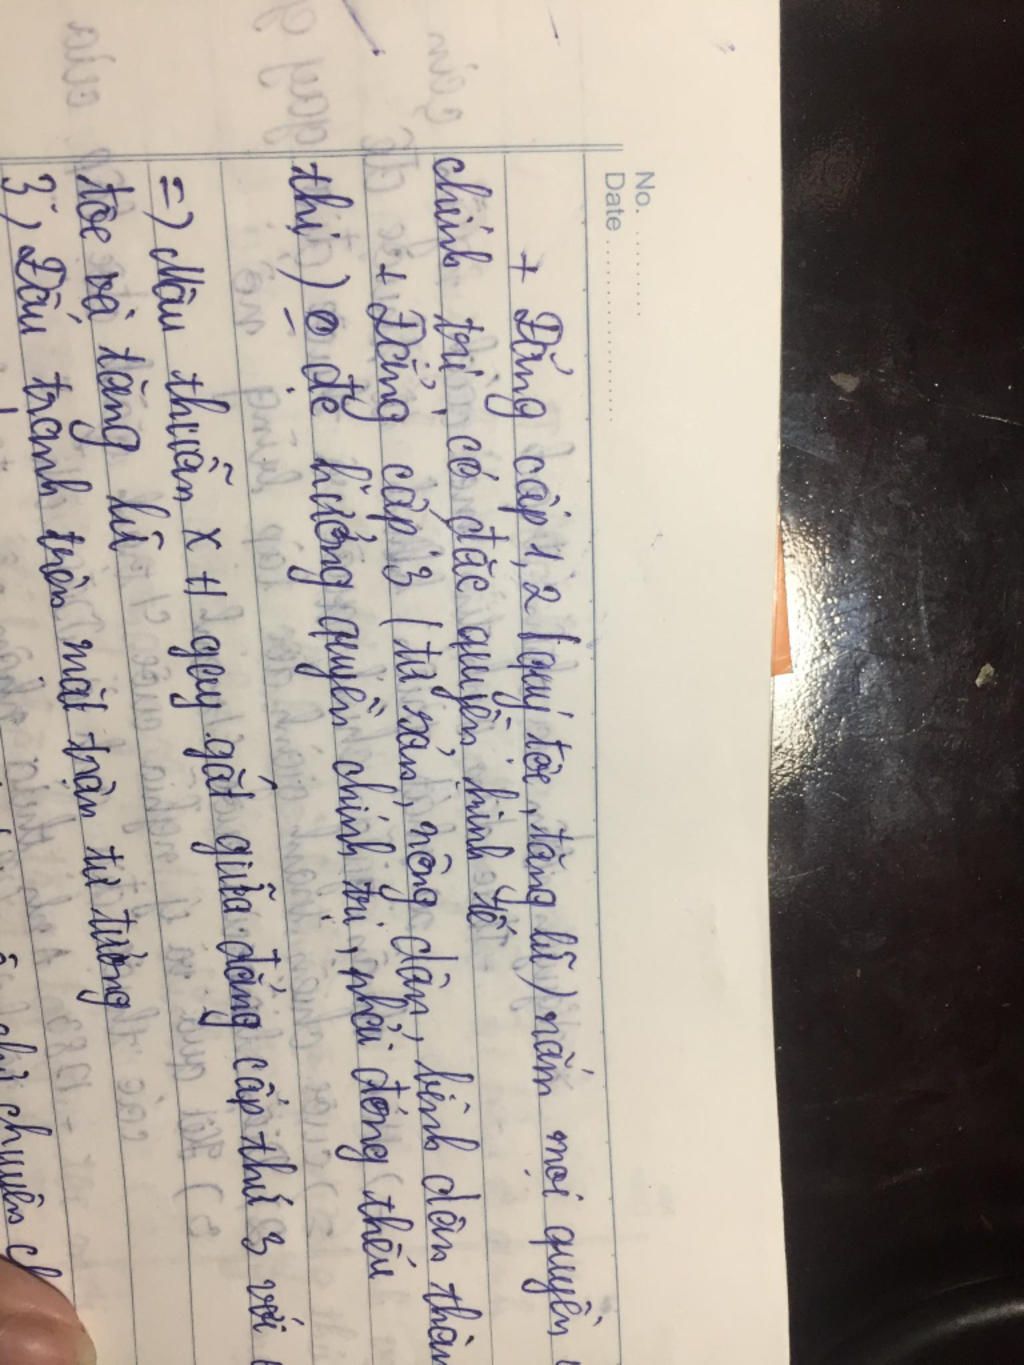 No. ............
Date ....................
+ Đẳng cấp 1, 2 (quý tộc, tăng lữ) nắm mọi quyền
chính trị, có đặc quyền kinh tế
+ Đẳng cấp 3 (tư sản, nông dân, bình dân thàn
thị) o đc hưởng quyền chính trị, phải đóng thếu
=) Mâu thuẫn XH gay gắt giữa đẳng cấp thứ 3 với
tộc và tăng lữ
3) Đấu tranh trên mặt trận tư tưởng